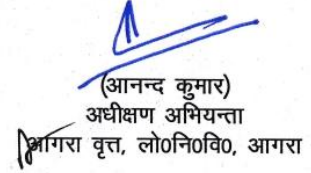 (आनन्द कुमार)
अधीक्षण अभियन्ता
आगरा वृत्त, लो0नि0वि0, आगरा